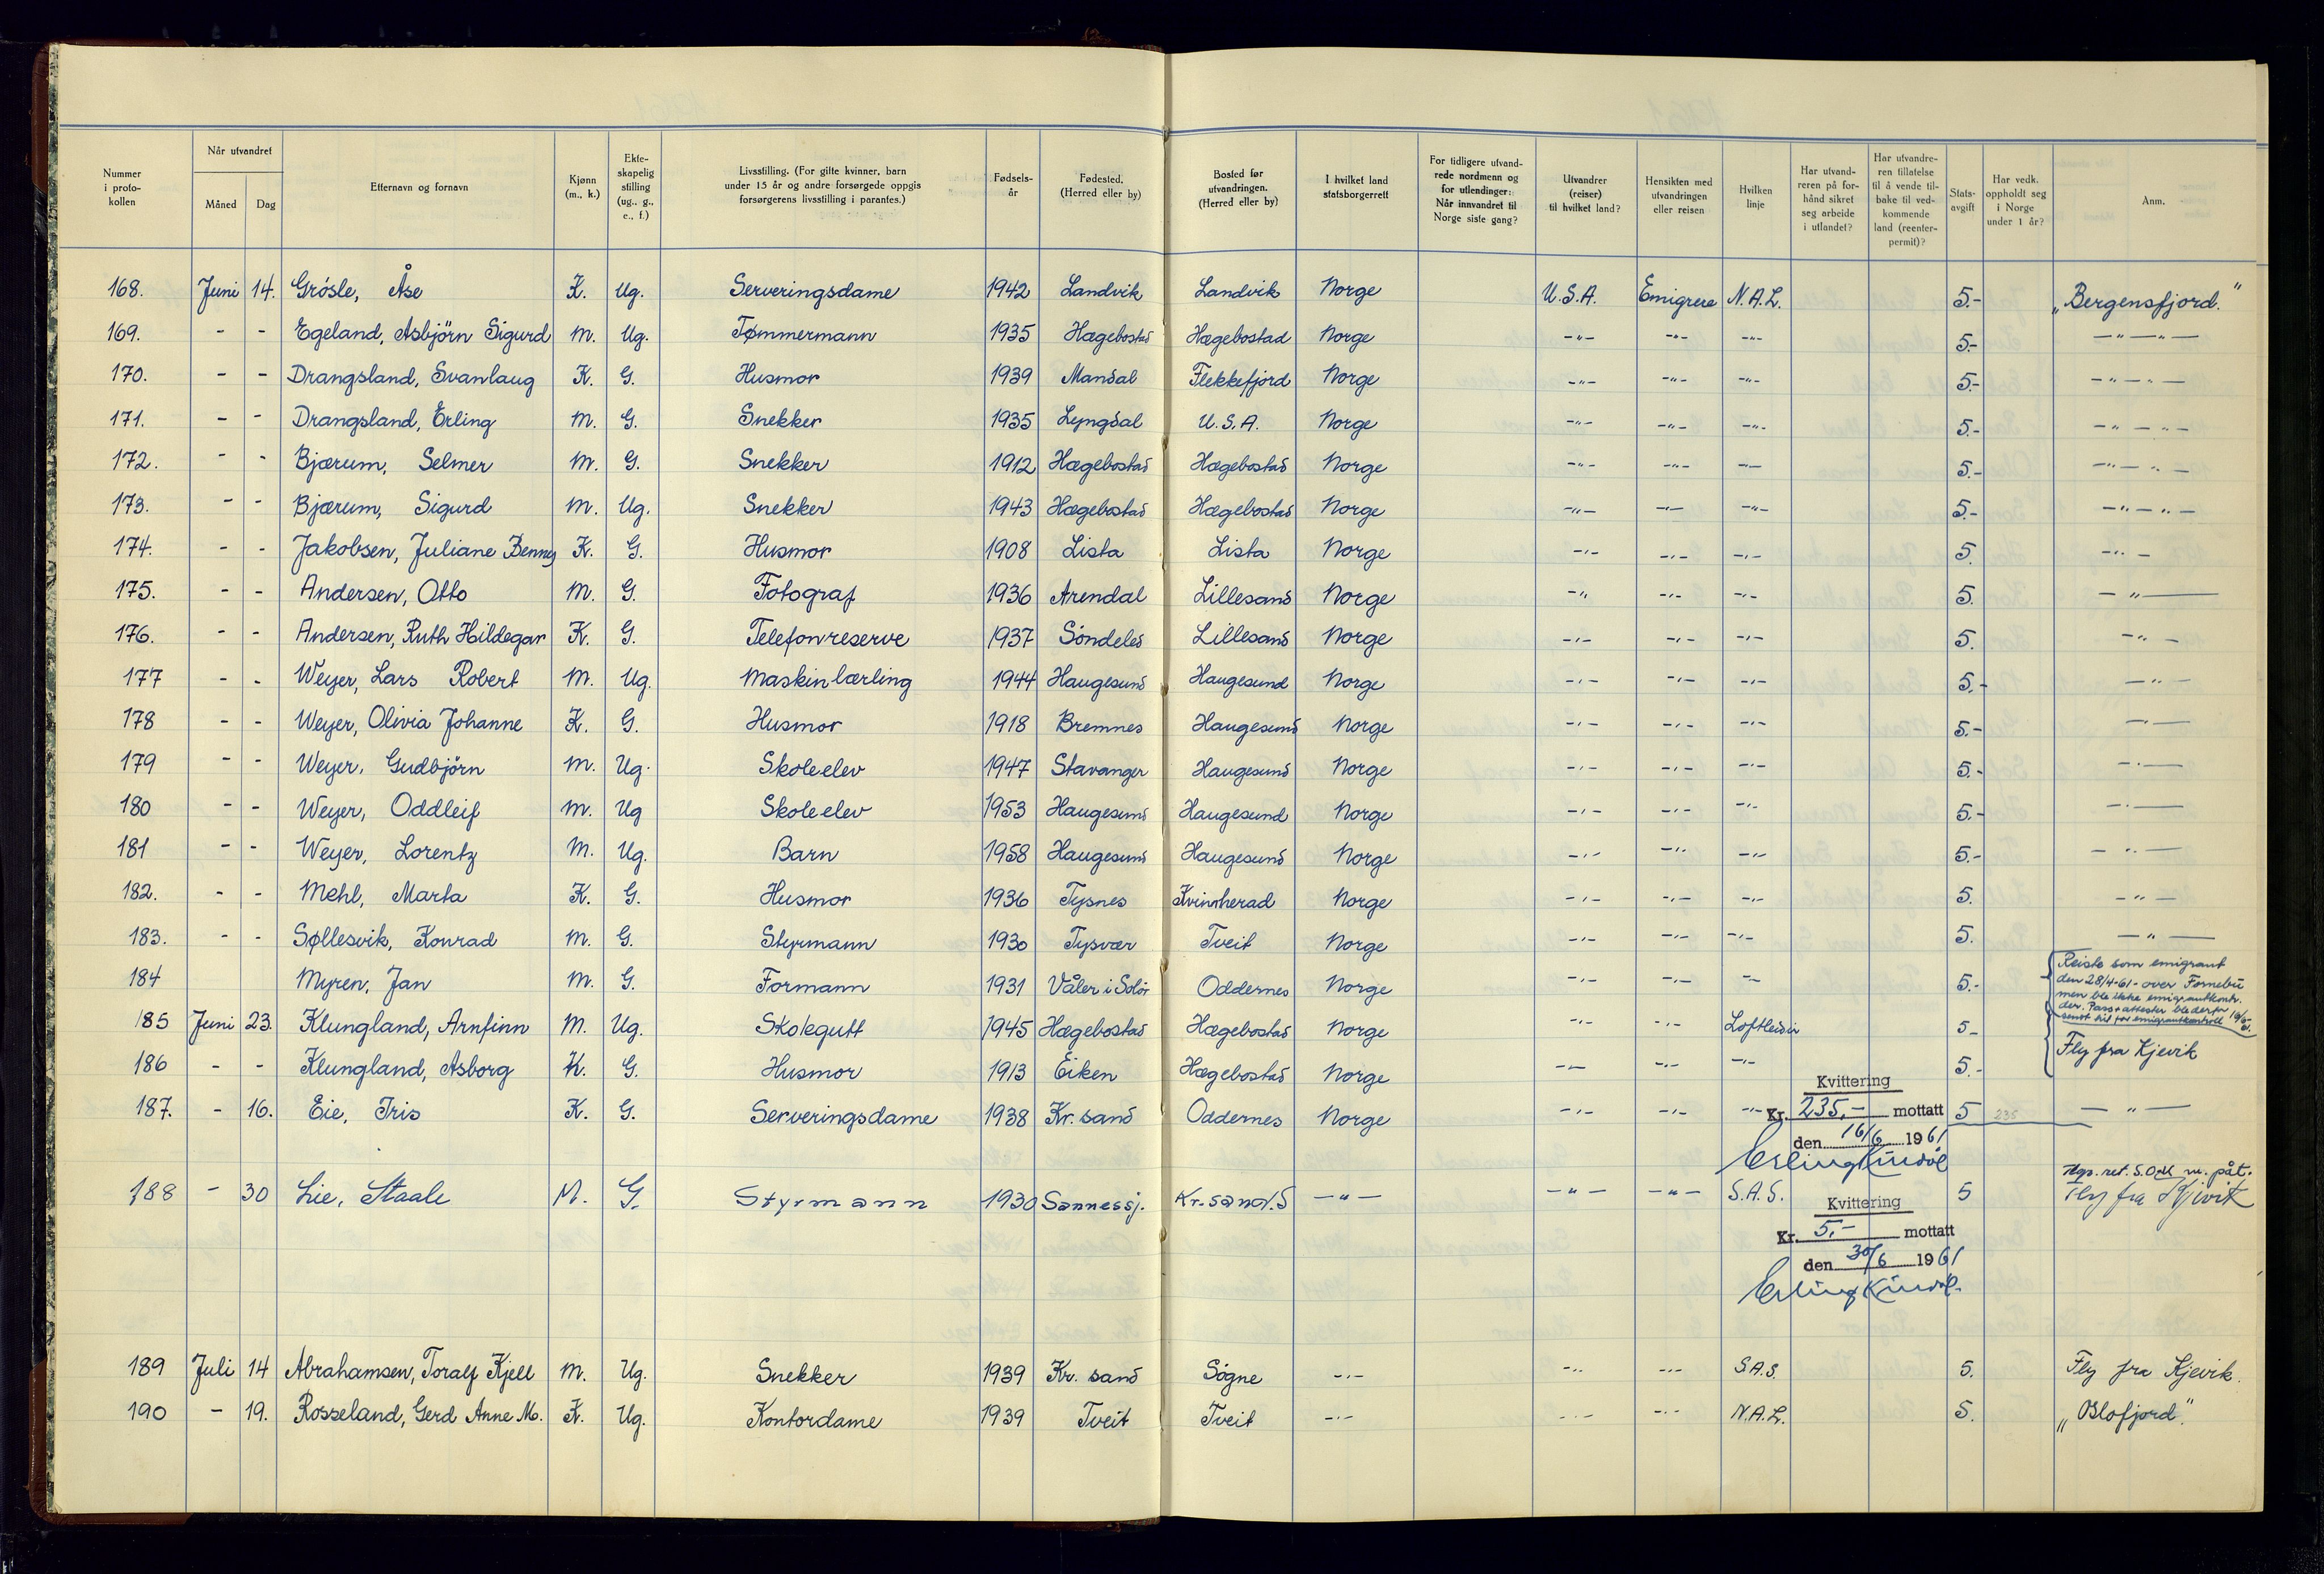 Nummer i proto-kollen | Når utvandret Måned Dag | Etternavn og fornavn | Kjønn (m., k.) | Ekte-skapelig stilling (ug., g., e., f.) | Livsstilling. (For gifte kvinner, barn under 15 år og andre forsørgede oppgis forsørgerens livsstilling i parantes.) | Fødsels-år | Fødested. (Herred eller by) | Bosted før utvandringen. (Herred eller by) | I hvilket land statsborgerrett | For tidligere utvand-rede nordmenn og for utlendinger: Når innvandret til Norge siste gang? | Utvandrer (reiser) til hvilket land? | Hensikten med utvandringen eller reisen | Hvilken linje | Har utvand-reren på for-hånd sikret seg arbeide i utlandet? | Har utvandre-ren tillatelse til å vende til-bake til ved-kommende land (reenter-permit)? | Stats-avgift | Har vedk. oppholdt seg i Norge under 1 år? | Anm.
168. Juni 14. Grósle, Åse K. Ug. Serveringsdame 1942 Landvik Landvik Norge U.S.A. Emigrere N.A.L. 5.- "Bergensfjord."
169. - - Egeland, Asbjörn Sigurd M. Ug. Tømmermann 1935 Hægebostad Hægebostad Norge -"- -"- -"- 5.- -"-"-
170. - - Drangsland, Svanlaug K. G. Husmor 1939 Mandal Flekkefjord Norge -"- -"- -"- 5.- -"-"-
171. - - Drangsland, Erling M. G. Snekker 1935 Lyngdal U.S.A. Norge -"- -"- -"- 5.- -"-"-
172. - - Bjærum, Selmer M. G. Snekker 1912 Hægebostad Hægebostad Norge -"- -"- -"- 5.- -"-"-
173. - - Bjærum, Sigurd M. Ug. Snekker 1943 Hægebostad Hægebostad Norge -"- -"- -"- 5.- -"-"-
174. - - Jakobsen, Juliane Benny K. G. Husmor 1908 Lista Lista Norge -"- -"- -"- 5. -"-
175. - - Andersen, Otto M. G. Fotograf 1936 Arendal Lillesand Norge -" -"- -"- 5. -"-
176. - - Andersen, Ruth Hildegar K. G. Telefonreserve 1937 Söndeled Lillesand Norge -"- -"- -"- 5. -"-
177 - - Weyer, Lars Robert M. Ug. Maskinlærling 1944 Haugesund Haugesund Norge -"- -"- -"- 5.- -"-
178 - - Weyer, Olivia Johanne K. G. Husmor 1918 Bremnes Haugesund Norge -"- -"- -"- 5.- -"-
179 - - Weyer, Gudbjörn M. Ug. Skoleelev 1947 Stavanger Haugesund Norge -"- -"- -"- 5.- -"-
180 - - Weyer, Oddleif M. Ug Skoleelev 1953 Haugesund Haugesund Norge -"- -"- -"- 5.- -"-
181 - - Weyer, Lorentz M. Ug. Barn 1958 Haugesund Haugesund Norge -"- -"- -"- 5.- -"-
182. - - Mehl, Marta K. G. Husmor 1936 Tysnes Kvinnherad Norge -"- -"- -"- 5. -"-
183. - - Søllesvik, Konrad M. G. Styrmann 1930 Tysvær Tveit Norge -"- -"- -"- 5. -"-
184 Myren, Jan M. G. Formann 1931 Våler i Solör Oddernes Norge -"- -"- -"- 5.- Reiste som emigrant
den 28/4-61- over Fornebu
men ble ikke emigrantkontr.
der. Pass + attester ble derfor
sendt hit for emigrantkontroll 16/6-61.
185 Juni 23. Klungland, Arnfinn M. Ug. Skolegutt 1945 Hægebostad Hægebostad Norge -"- -"- Loftleidir 5-
186 - - Klungland, Asborg K. G. Husmor 1913 Eiken Hægebostad Norge -"- -"- -"- 5.- Fly fra Kjevik
187. - 16. Eie, Iris K. G. Serveringsdame 1938 Kr.sand Oddernes Norge -"- -"- -"- 5 235 -"-
Kvittering
Kr. 235,- mottatt
den 16/6 1961
188 - 30 Lie, Staale M. G. Styrmann 1930 Sannessj. Kr.sand.S -"- -"- -"- S.A.S. 5 Fly fra Kjevik
Kvittering
Kr. 5,- mottatt
den 30/6 1961
189 Juli 14 Abrahamsen, Toralf Kjell M. Ug. Snekker 1939 Kr. sand Sögne -"- -"- -"- S.A.S. 5. Fly fra Kjevik.
190 - 19. Rosseland, Gerd Anne M. K. Ug. Kontordame 1939 Tveit Tveit -"- -"- -"- N.A.L. 5. "Oslofjord".